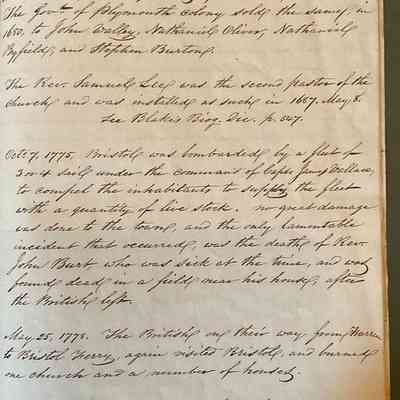 The Govt. of Plymouth Colony sold the same, in
1680, to John Walley, Nathaniel Oliver, Nathaniel
Byfield, and Stephen Burton.
The Rev. Samuel Lee was the second pastor of the
church and was installed as such in 1687. May 8.
See Blake's Biog. Dic. p. 547.
Octr. 7, 1775, Bristol was bombarded by a fleet of
3 or 4 sail under the command of Capt. James Wallace,
to compel the inhabitants to supply the fleet
with a quantity of live stock. no great damage
was done to the town, and the only lamentable
incident that occurred, was the death of Rev.
John Burt, who was sick at the time, and was
found dead in a field near his house, after
the British left.
May 25, 1778. The British on their way from Warren
to Bristol Ferry, again visited Bristol, and burned
one church and a number of houses.